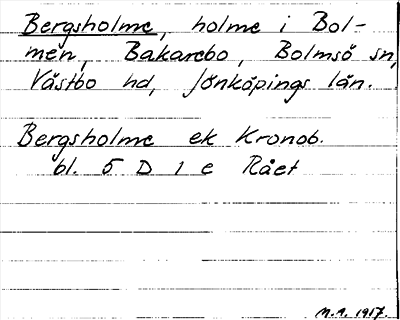 Bergsholme, holme i Bol-
men, Bakarebo, Bolmsö sn,
Västbo hd, Jönköpings län.
Bergsholme ek Kronob.
bl. 5 D 1 e Rået
M.A. 1917.